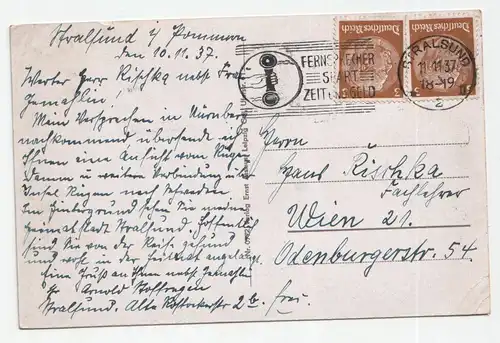 Stralsund i/ Pommern
den 10.11.37.
Werter Herr Rischka nebst Frau
Gemahlin!
Mein Versprechen in Nürnberg
nachkommend, übersende ich
Ihnen eine Ansicht vom Rügen
Damm u weitere Verbindung der
Insel Rügen nach Schweden.
Im Hintergrund sehen Sie meine
Heimatstadt Stralsund. Hoffentlich
sind Sie von der Reise gesund
und wohl in der Heimat angelangt.
Eine Gruß an Ihnen nebst Gemahlin
Arnold
Stralsund. Alte Rostockerstr 2 b.
FERNSPRECHER
SPART
ZEIT GELD
Deutsches Reich
Deutsches Reich
3
3
STRALSUND
11.11.37
18-19
2
Herrn
Hans Rischka
Fachlehrer
Wien 21.
Odenburgerstr. 54.
frei.